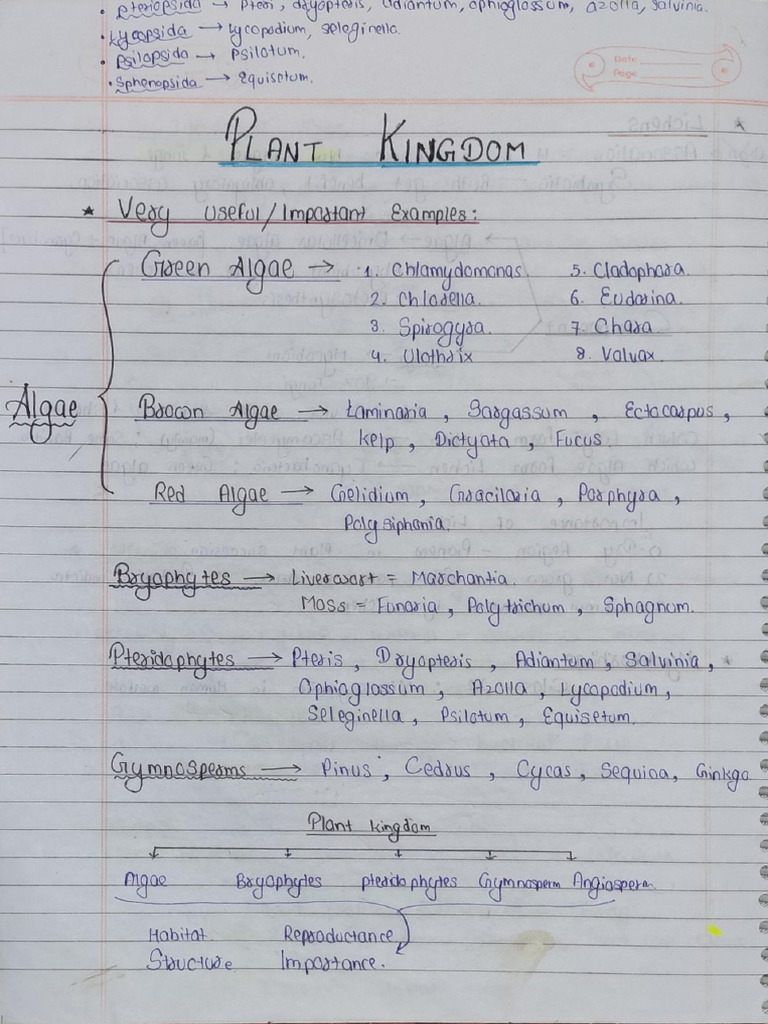 • Pteriopsida → Pteri, dryopteris, adiantum, ophioglossum, azolla, salvinia.
• Lycopsida → Lycopodium, seleginella.
• Psilopsida → Psilotum.
• Sphenopsida → Equisetum.
Date
Page
PLANT KINGDOM
★ Very Useful/Important Examples:
Green Algae → 1. Chlamydomonas 5. Cladophora.
2. Chlorella. 6. Eudorina.
3. Spirogyra. 7. Chara
4. Ulothrix 8. Volvox.
Algae
Brown Algae → Laminaria, Sargassum, Ectocarpus,
Kelp, Dictyota, Fucus.
Red Algae → Gelidium, Gracilaria, Porphyra,
Polysiphonia.
Bryophytes → Liverwort = Marchantia.
Moss = Funaria, Polytrichum, Sphagnum.
Pteridophytes → Pteris, Dryopteris, Adiantum, Salvinia,
Ophioglossum, Azolla, Lycopodium,
Seleginella, Psilotum, Equisetum.
Gymnosperms → Pinus, Cedrus, Cycas, Sequioa, Ginkgo
Plant kingdom
Algae Bryophytes pteridophytes Gymnosperm Angiosperm.
Habitat. Reproductance
Structure. Importance.